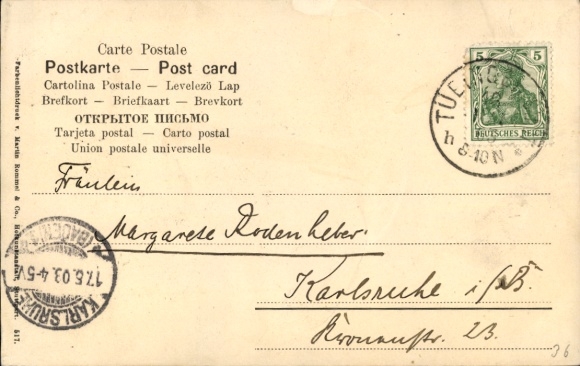 Carte Postale
Postkarte — Post card
Cartolina Postale — Levelező Lap
Brefkort — Briefkaart — Brevkort
ОТКРЫТОЕ ПИСЬМО
Tarjeta postal — Carto postal
Union postale universelle
5 5
DEUTSCHES REICH
8-10 N
Fräulein
Margarete Rodenheber
Karlsruhe i/B.
Kronenstr. 23.
KARLSRUHE (BADEN)
17.5.03.4-5
Farbenlichtdruck v. Martin Rommel & Co., Hofkunstanstalt, Stuttgart. 517.
36